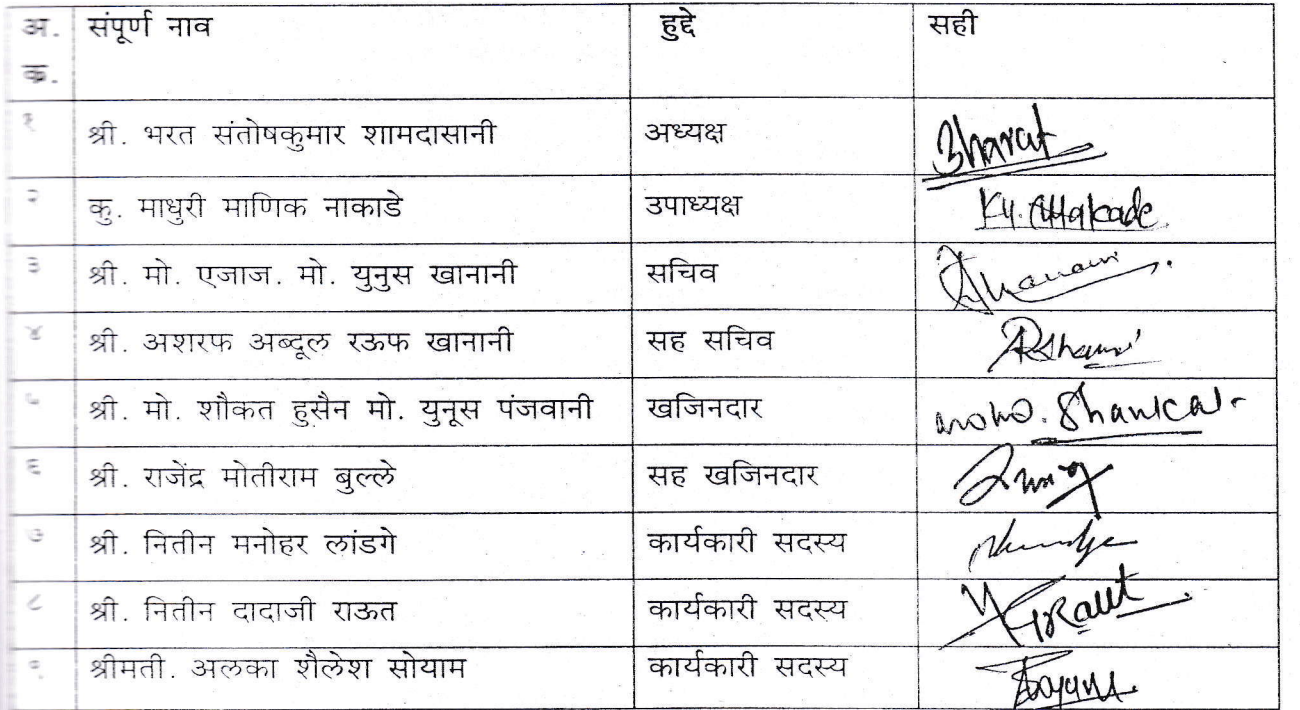 अ. संपूर्ण नाव हुद्दे सही
क.
१ श्री. भरत संतोषकुमार शामदासानी अध्यक्ष Bharat
२ कु. माधुरी माणिक नाकाडे उपाध्यक्ष
३ श्री. मो. एजाज. मो. युनुस खानानी सचिव
४ श्री. अशरफ अब्दूल रऊफ खानानी सह सचिव
५ श्री. मो. शौकत हुसैन मो. युनूस पंजवानी खजिनदार
६ श्री. राजेंद्र मोतीराम बुल्ले सह खजिनदार
७ श्री. नितीन मनोहर लांडगे कार्यकारी सदस्य
८ श्री. नितीन दादाजी राऊत कार्यकारी सदस्य
९ श्रीमती. अलका शैलेश सोयाम कार्यकारी सदस्य